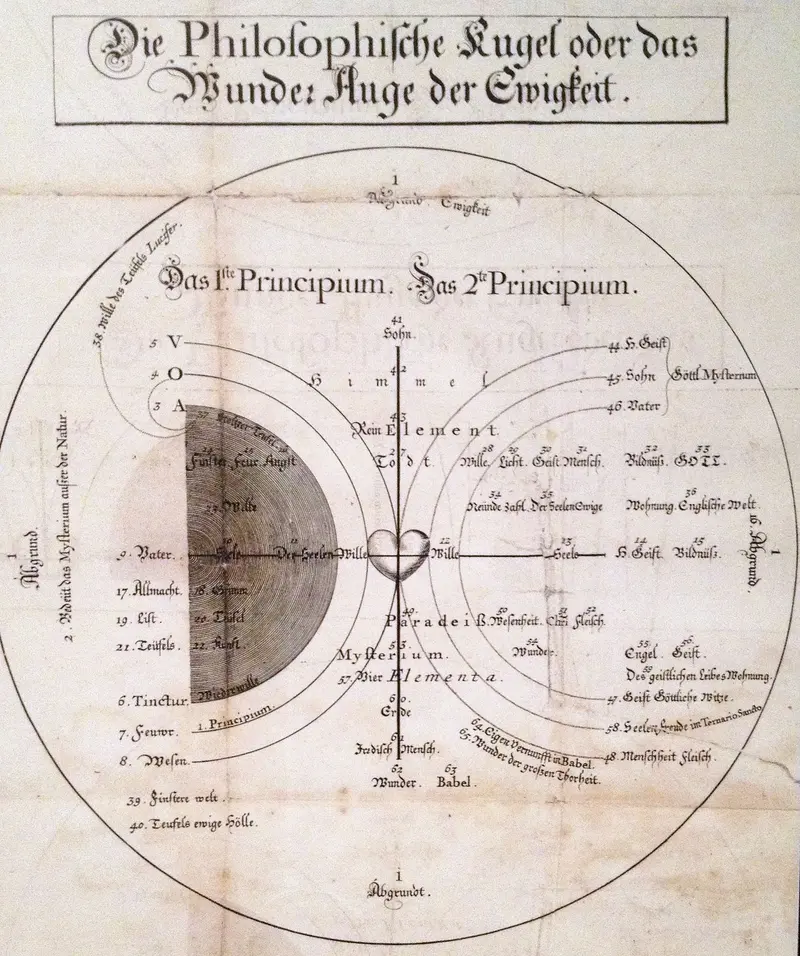 Die Philosophische Kugel oder das
Wunder Auge der Ewigkeit.
1
Abgrund. Ewigkeit
38. Wille des Teüfels Lucifer.
Das 1.ste Principium. Das 2te Principium.
41
Sohn.
5 V
44. H. Geist
4 O
42
Himmel
45. Sohn
Göttl. Mysterium
3 A
46. Vater
43
Rein Element.
37.
24 25
Finster Feur Angst
27
Todt.
28 29 30 31
Wille. Licht. Geist Mensch.
32 33
Bildnüß. GOTT.
23. Wille
34 35
Der Seelen Ewige
36
Wohnung. Englische Welt.
1
Abgrund.
2. Bedeüt das Mysterium außer der Natur.
9. Vater.
10
Seele
11
Der Seelen Wille
12
Wille
13
Seele
14 15
H. Geist. Bildnüß.
1
Abgrund.
17. Allmacht. 18. Grimm
19. List. 20. Teüfel
21. Teüfels. 22. Kunst.
49.
Paradeiß.
50 51 52
Wesenheit. Chri Fleisch.
53.
Mysterium.
54
Wunder.
55 56
Engel. Geist.
57. Vier Elementa.
59
Des geistlichen Leibes Wohnung.
6. Tinctur.
Wiederwille
47. Geist Göttliche Witze.
60.
Erde
7. Feuwr.
1. Principium.
58. Seelen Ende im Ternario Sancto
61
Irdisch Mensch.
64. Eigen Vernunfft in Babel.
65. Wunder der großen Thorheit.
8. Wesen.
48. Menschheit Fleisch.
62 63
Wunder. Babel.
39. Finstere welt.
40. Teüfels ewige Hölle.
1
Abgrundt.